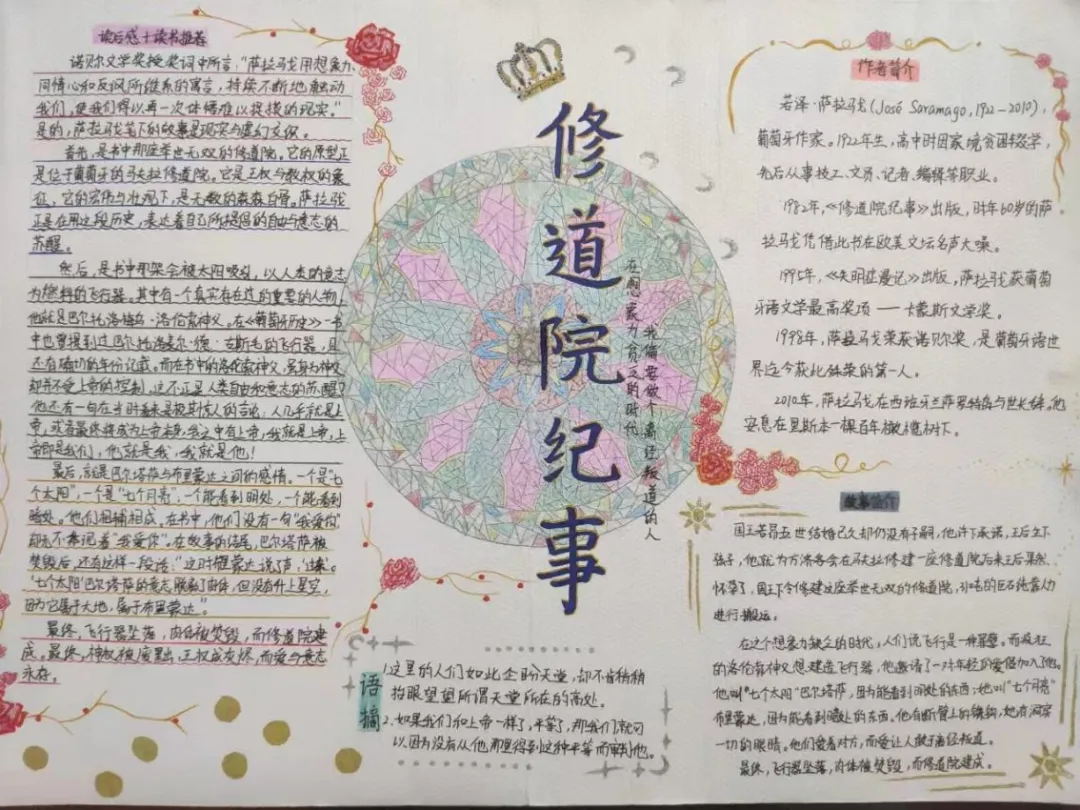 读后感+读书推荐
诺贝尔文学奖授奖词中所言，“萨拉马戈用想象力、
同情心和反讽所维系的寓言，持续不断地触动
我们，使我们得以再一次体悟难以捉摸的现实。”
是的，萨拉马戈笔下的故事是现实与虚幻交织。
首先，是书中那座举世无双的修道院。它的原型正
是位于葡萄牙的马夫拉修道院。它是王权与教权的象
征，它的宏伟与壮观下，是无数的森森白骨。萨拉马戈
正是在用这段历史，表达着自己所提倡的自由与意志的
苏醒。
然后，是书中那架会被太阳吸引，以人类的意志
为燃料的飞行器。其中有一个真实存在过的重要的人物，
他就是巴尔托洛梅乌·洛伦索神父。在《葡萄牙历史》一书
中也曾提到过巴尔托洛梅乌·德·古斯毛的飞行器，且
还有确切的年份记载。而在书中的洛伦索神父，虽身为神父
却并不受上帝的控制，这不正是人类自由和意志的苏醒？
他还有一句在当时看来是极其惊人的言论，人几乎就是上
帝，或者最终将成为上帝本身，我之中有上帝，我就是上帝，上
帝即是我们，他就是我，我就是他！
最后，就是巴尔塔萨与布里蒙达之间的感情。一个是“七
个太阳”，一个是“七个月亮”，一个能看到明处，一个能看到
暗处。他们相辅相成。在书中，他们没有一句“我爱你”
却无不表现着“我爱你”。在故事的结尾，巴尔塔萨被
焚毁后，还有这样一段话：“这时布里蒙达说了声，过来。
‘七个太阳’巴尔塔萨的意志脱离了肉体，但没有升上星空，
因为它属于大地，属于布里蒙达”。
最终，飞行器坠落，肉体被焚毁，而修道院建
成。最终，神权被废黜，王权成灰烬，而爱与意志
永存。
修道院纪事
在想象力贫乏的时代
我偏要做个离经叛道的人
语摘
1.这里的人们如此企盼天堂，却不肯稍稍
抬眼望望所谓天堂所在的高处。
2.如果我们和上帝一样了，平等了，那我们就可
以因为没有从他那里得到这种平等而审判他。
作者简介
若泽·萨拉马戈(José Saramago,1922-2010)，
葡萄牙作家。1922年生，高中时因家境贫困辍学，
先后从事技工、文员、记者、编辑等职业。
1982年，《修道院纪事》出版，时年60岁的萨
拉马戈凭借此书在欧美文坛名声大噪。
1995年，《失明症漫记》出版，萨拉马戈获葡萄
牙语文学最高奖项——卡蒙斯文学奖。
1998年，萨拉马戈荣获诺贝尔奖，是葡萄牙语世
界迄今获此殊荣的第一人。
2010年，萨拉马戈在西班牙兰萨罗特岛与世长辞。他
安息在里斯本一棵百年橄榄树下。
故事简介
国王若昂五世结婚已久却仍没有子嗣，他许下承诺，王后生下
孩子，他就为方济各会在马夫拉修建一座修道院后来王后果然
怀孕了，国王下令修建这座举世无双的修道院，31吨的巨石纯靠人力
进行搬运。
在这个想象力缺乏的时代，人们说飞行是一种罪孽。而疯狂
的洛伦索神父想建造飞行器，他邀请了一对年轻的爱侣加入了他。
他叫“七个太阳”巴尔塔萨，因为能看到明处的东西；她叫“七个月亮”
布里蒙达，因为能看到暗处的东西。他有断臂上的铁钩，她有洞察
一切的眼睛。他们爱着对方，而爱让人敢于离经叛道。
最终，飞行器坠落，肉体被焚毁，而修道院建成。